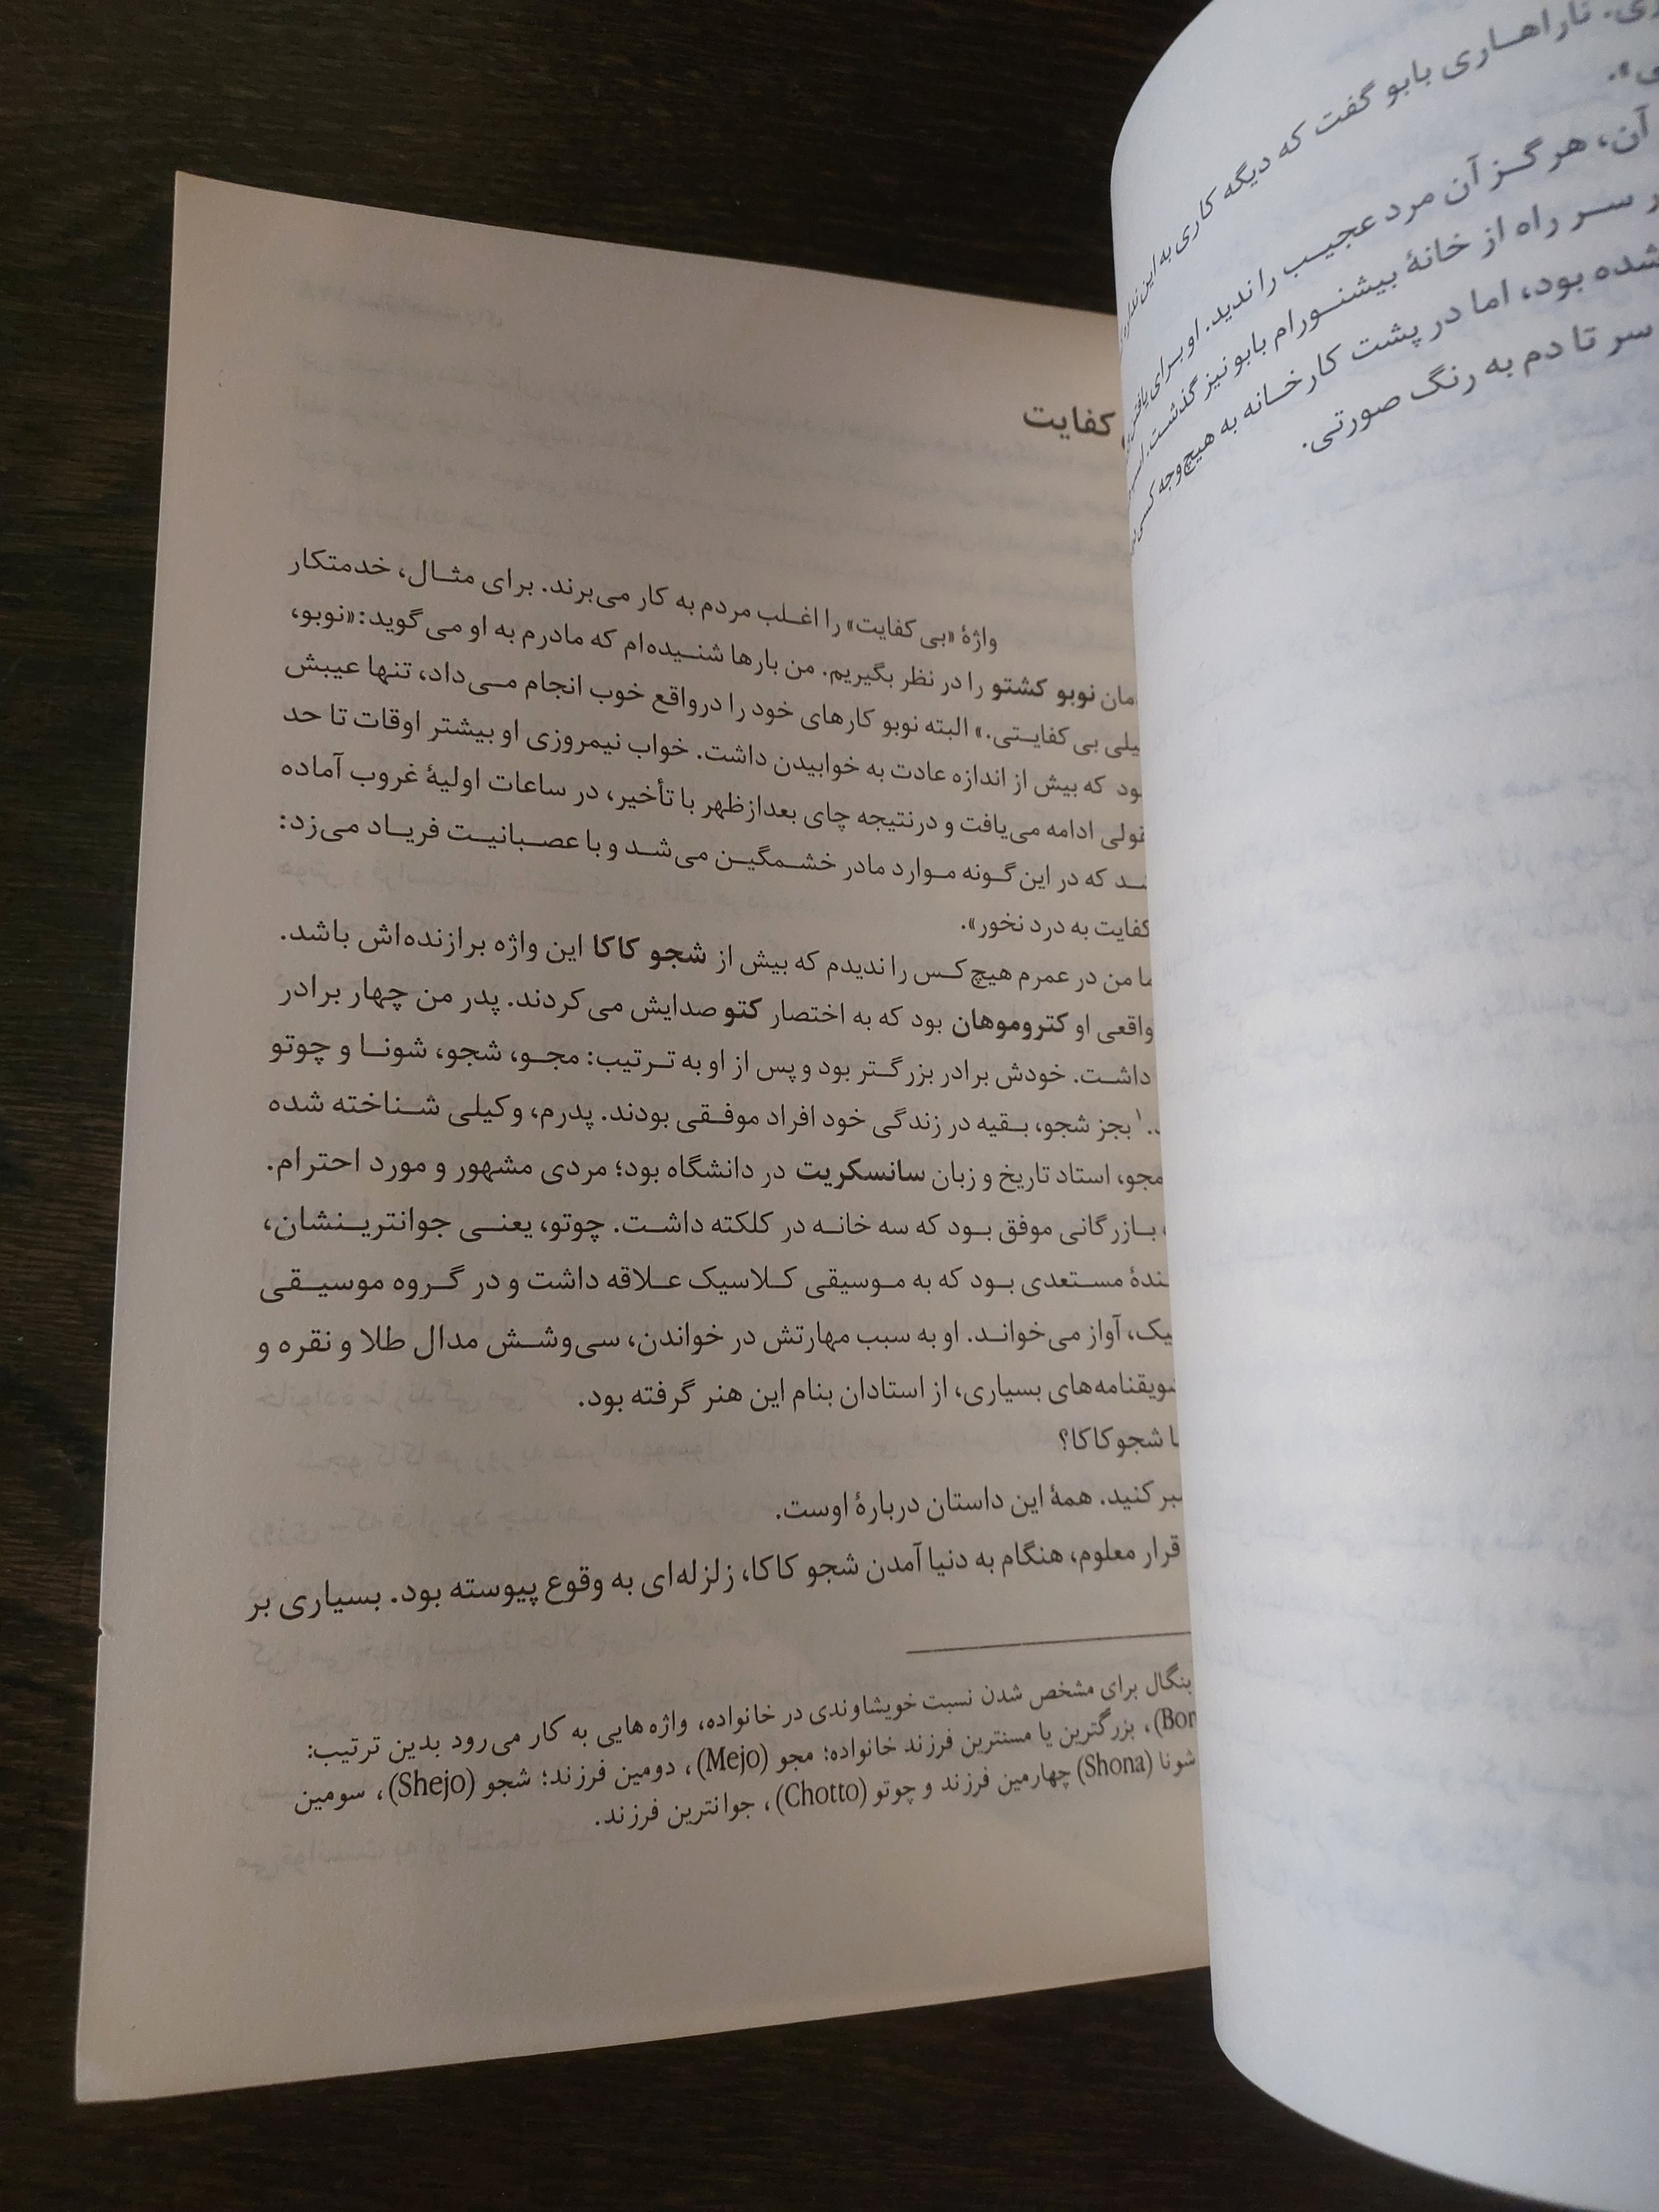 ناراهاری بابو گفت که دیگه کاری به این
آن، هرگز آن مرد عجیب را ندید. او برای
سر راه از خانهٔ بیشنورام بابو نیز گذشت.
شده بود، اما در پشت کارخانه به هیچ‌وجه کسی
سر تا دم به رنگ صورتی.
کفایت
واژهٔ «بی‌کفایت» را اغلب مردم به کار می‌برند. برای مثال، خدمتکار
نوبو کشتو را در نظر بگیریم. من بارها شنیده‌ام که مادرم به او می‌گوید: «نوبو،
بی‌کفایتی.» البته نوبو کارهای خود را درواقع خوب انجام می‌داد، تنها عیبش
که بیش از اندازه عادت به خوابیدن داشت. خواب نیمروزی او بیشتر اوقات تا حد
ادامه می‌یافت و درنتیجه چای بعدازظهر با تأخیر، در ساعات اولیهٔ غروب آماده
که در این‌گونه موارد مادر خشمگین می‌شد و با عصبانیت فریاد می‌زد:
کفایت به درد نخور».
من در عمرم هیچ‌کس را ندیدم که بیش از شجو کاکا این واژه برازنده‌اش باشد.
واقعی او کتروموهان بود که به اختصار کتو صدایش می‌کردند. پدر من چهار برادر
داشت. خودش برادر بزرگتر بود و پس از او به ترتیب: مجو، شجو، شونا و چوتو
.۱ بجز شجو، بقیه در زندگی خود افراد موفقی بودند. پدرم، وکیلی شناخته شده
مجو، استاد تاریخ و زبان سانسکریت در دانشگاه بود؛ مردی مشهور و مورد احترام.
بازرگانی موفق بود که سه خانه در کلکته داشت. چوتو، یعنی جوانترینشان،
مستعدی بود که به موسیقی کلاسیک علاقه داشت و در گروه موسیقی
آواز می‌خواند. او به سبب مهارتش در خواندن، سی‌وشش مدال طلا و نقره و
بسیاری، از استادان بنام این هنر گرفته بود.
شجوکاکا؟
کنید. همهٔ این داستان دربارهٔ اوست.
قرار معلوم، هنگام به دنیا آمدن شجو کاکا، زلزله‌ای به وقوع پیوسته بود. بسیاری بر
بنگال برای مشخص شدن نسبت خویشاوندی در خانواده، واژه‌هایی به کار می‌رود بدین ترتیب:
(Bor)، بزرگترین یا مسنترین فرزند خانواده؛ مجو (Mejo)، دومین فرزند؛ شجو (Shejo)، سومین
شونا (Shona) چهارمین فرزند و چوتو (Chotto)، جوانترین فرزند.